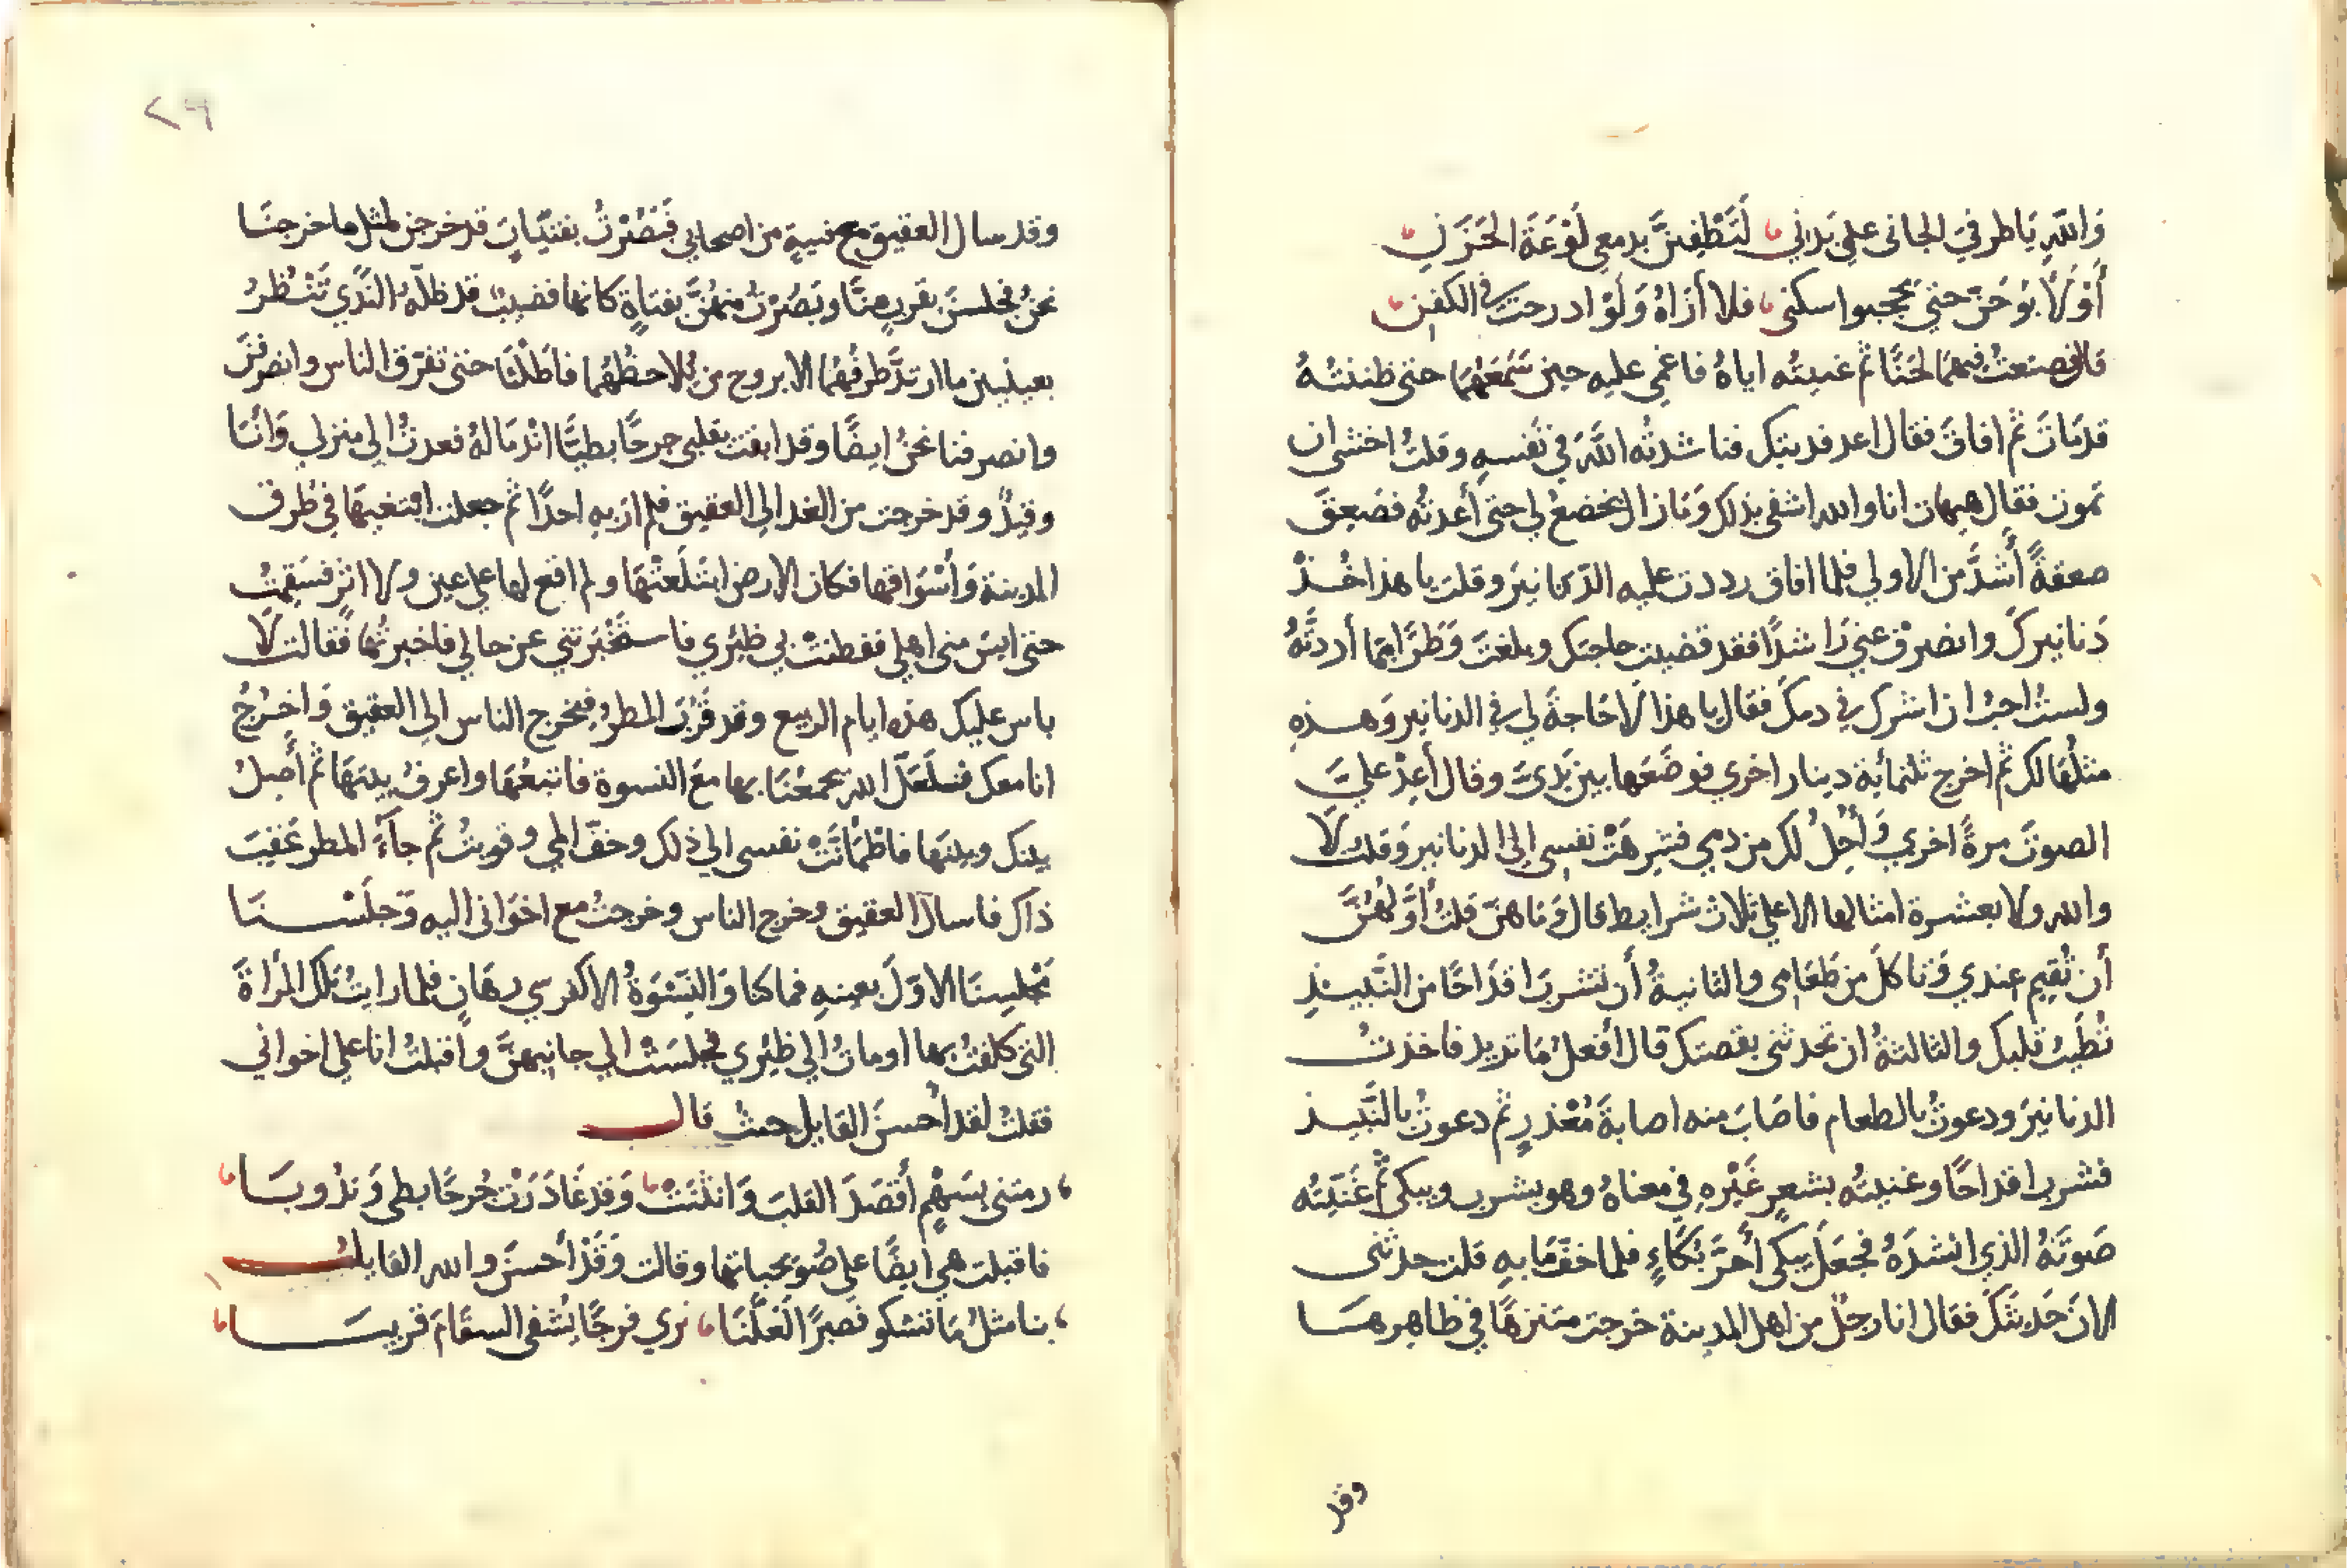 وَاللهِ يَا طرفيَ الجاني على بَدَنِي لَتُطْفِئَنَّ بدمعي لَوْعَةَ الحَزَنِ
أَوْ لَأَبُوحَنّ حتى يحجبوا سكني فلا أَرَاهُ وَلَوْ ادرجت في الكفن
قال فصنعتُ فيهما لحنًا ثم غنيته اياهُ فاغمي عليه حين سَمعَهُما حتى ظننتُهُ
قد مَاتَ ثم افاقَ فقال اعد فديتك فناشدته اللهَ في نفسهِ وقلتُ اخشى ان
تموت فقال هيهات انا والله اشقى بذلك وَمَا زال يخضعُ لي حتى أعدتُه فصَعِقَ
صعقةً أَشدَّ من الاولي فلما افاق رددت عليه الدّنانيرَ وقلت يا هذا خُذْ
دَنانيركَ وانصرفْ عني رَاشدًا فقد قضيت حاجتك وبلغتَ وَطرًا مما أردتَّهُ
ولستُ احبُّ ان اشرك في دمكَ فقال يا هذا لا حَاجةَ لي في الدنانير وَهذهِ
مثلُهَا لك ثم اخرج ثلثمائة دينار اخري فوضَعها بين يَدَيَّ وقال أَعِدْ عليَّ
الصوتَ مرةً اخري وَأُحِلُّ لك من دمي فشرهَتْ نفسي إلى الدنانير وَقلت لَا
والله ولا بعشرة امثالها الا على ثلاث شرايط قال وَمَا هنّ قلتُ أَوَّلُهُنَّ
أن تُقيم عندي وَتاكلَ من طَعَامي والثانيةُ أن تشربَ اقدَاحًا من النَّبيذِ
تُطَيِّبُ قلبك والثالثةُ ان تحدثني بقصتك قال أفعلُ مَا تريد فاخذتُ
الدنانيرَ ودعوتُ بالطعام فاصَابَ منه اصابةَ مُعْذرٍ ثم دعوتُ بالنَّبيذ
فشرب اقداحًا وغنيتُه بشعرٍ غَيْرهِ في معناهُ وهو يشرب ويبكي ثم غَنّيتُه
صَوتَهُ الذي انشدَهُ فجعَلَ يبكي أَحَرَّ بُكَاءٍ فلما خفّ مَا بهِ قلت حدثني
الانَ حَديثَكَ فقال انا رجلٌ من اهل المدينة خرجت متنزهًا في ظاهرهَا
وقد
وقد سال العقيق مع فتيةٍ من اصحابي فَبَصُرْتُ بفتيَاتٍ قد خرجن لمثل ما خرجنَا
نحنُ فجلسنَ بقربٍ منَّا وبَصُرْتُ منهُنَّ بفتاةٍ كانها قضيبٌ قد ظلّهُ النَّدَي تَنْظُرُ
بعينين ما ارتدَّ طرفُهُما الا بروح من يُلاحظُهُما فاطَلْنَا حتى تفرّق الناس وانصرفنَ
وانصرفنا نحنُ ايضًا وقد ابقت بقلبي جرحًا بطيًّا انْدمَالهُ فعدتُ الى منزلي وَأنَا
وقيذٌ وقد خرجت من الغد الي العقيق فلم ار بهِ احدًا ثم جعلت اتتبعهَا في طرق
المدينة وَأسْوَاقها فكان الارض ابتَلَعتْهَا ولم اقع لها على عين ولا اثر فسَقِمتُ
حتى ايسَ مني اهلي ففطنتْ بي ظئري فاستخبَرَتني عن حالي فاخبرتُها فقالت لَا
باس عليك هذه ايام الربيع وقد قَرُبَ المطرُ فيخرج الناس الى العقيق وَاخرُجُ
انا معك فلَعَلّ الله يجمعُنَا بها معَ النسوة فاتبعُهَا واعرفُ بيتهَا ثم أَصِلُ
بينك وبينهَا فاطمَأنَّتْ نفسي الي ذلك وخفّ المي وقويتُ ثم جآءَ المطر عَقيبَ
ذاك فاسالَ العقيق وخرج الناس وخرجتُ مع اخوَاني اليه وَجلَسْنَا
مَجْلِسنَا الاوّلَ بعينهِ فما كنا وَالنِّسْوَةُ الا كفرسي رهَانٍ فلما رايتُ تلك المرأةَ
التي كلفتُ بها اومأتُ الي ظئري فجلسَتْ الي جانبهنَّ واقبلتُ انا على اخواني
فقلتُ لقد أحسنَ القايل حيث قال
رمتني بسَهْمٍ أَقْصَدَ القلبَ وَانثَنَتْ وَقدْ غَادَرَتْ جُرحًا بطي وَنُدُوبَا
فاقبلت هي ايضًا على صُوَيحباتها وقالت وَقَدْ أحسنَ والله القايل
بنا مثلُ مَا تشكو فصبرًا لعَلَّنَا نري فرجًا يُشفي السقَامَ قريبَا